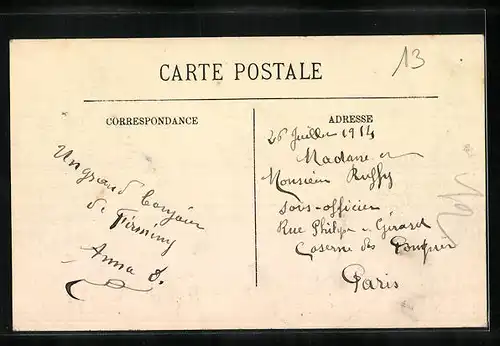 13
CARTE POSTALE
CORRESPONDANCE
Un grand bonjour
de Firminy
Anna D.
ADRESSE
26 Juillet 1914
Madame et
Monsieur Ruffy
Sous-officier
Rue Philippe de Girard
Caserne des Pompiers
Paris